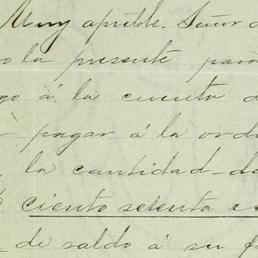 Muy apreble. Señor
la presente para
á la cuenta d
pagar á la ord
la cantidad d
ciento setenta e
de saldo á su f